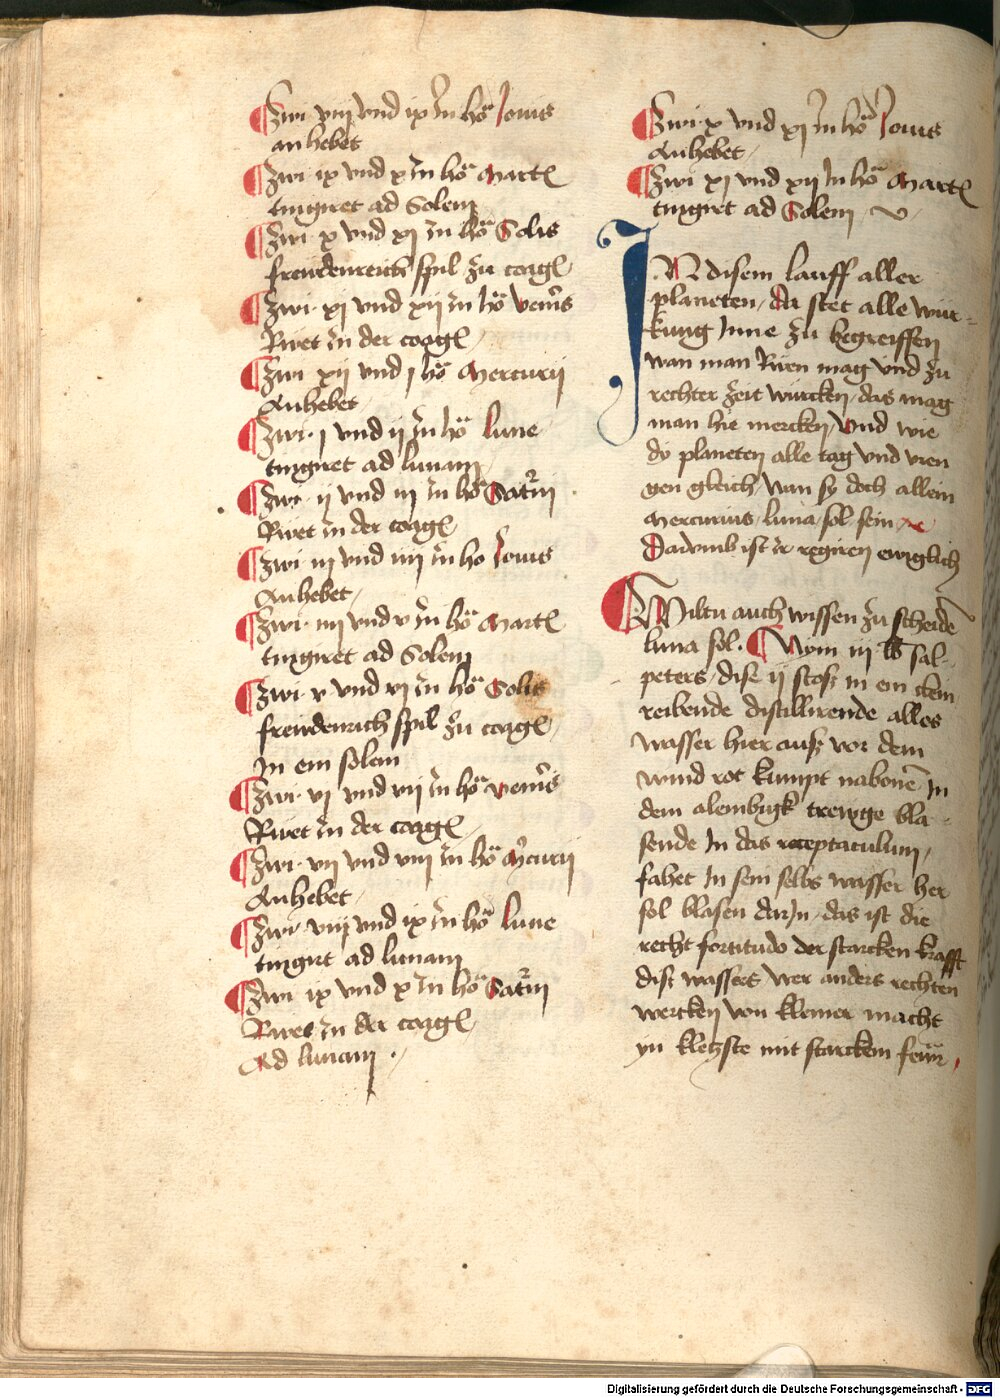 Zwi· viij vnd ix Jn hoͤ Jouis
an hebet
Zwi· ix vnd x Jn hoͤ Marct
tingiret ad Solem
Zwi· x vnd xj Jn hoͤ Solis
freudenreich spil zu coagl
Zwi· xj vnd xij Jn hoͤ veneris
Rivet Jn der coagl
Zwi xij vnd j hoͤ Mercurij
Anhebet
Zwi· j vnd ij Jn hoͤ lune
tingiret ad lunam
Zwi· ij vnd iij Jn hoͤ Saturni
Rivet Jn der coagl
Zwi iij vnd iiij Jn ho Jouis
Anhebet
Zwi· iiij vnd v Jn hoͤ Marct
tingiret ad Solem
Zwi· v vnd vj Jn hoͤ Solis
freudenrich spil zu coagl
Jn ein solem
Zwi· vj vnd vij Jn hoͤ veneris
Rivet Jn der coagl
Zwi· vij vnd viij Jn hoͤ Mercurij
Anhebet
Zwi· viij vnd ix Jn hoͤ lune
tingirt ad lunam
Zwi ix vnd x Jn hoͤ Saturni
Rivet Jn der coagl
Ad lunam ·
Zwi· x vnd xj Jn hoͤ Jouis
Anhebet
Zwi xj vnd xij Jn hoͤ Marct
tingirt ad Solem
JN disem lauff aller
planeten, da stet alle wur=
kung Jnne zu begreiffen
wan man Riren mag vnd zu
rechter zeit wurcken, das mag
man hie mercken, Vnd wie
dy planeten alle tag vnd vren
gen gleich, wan sy doch allein
Mercurius, luna sol sein
Darumb ist ir regiren ewiglich
Wiltu auch wissen zu scheide
luna sol. Nym iij lb sal=
peters, dise ij stosz in ein clein
reibende distillirende alles
wasser hier ausz vor dem
wind rot kumpt Jn
dem alembigk trewge bla=
sende Jn das receptaculum,
fahet Jn sein selbs wasser her
sol blasen darJn, das ist die
recht fortitudo der starcken krafft
disz wassers, wer anders rechten
wercken von kleiner macht
yn kletzste mit starckem feur
Digitalisierung gefördert durch die Deutsche Forschungsgemeinschaft - DFG